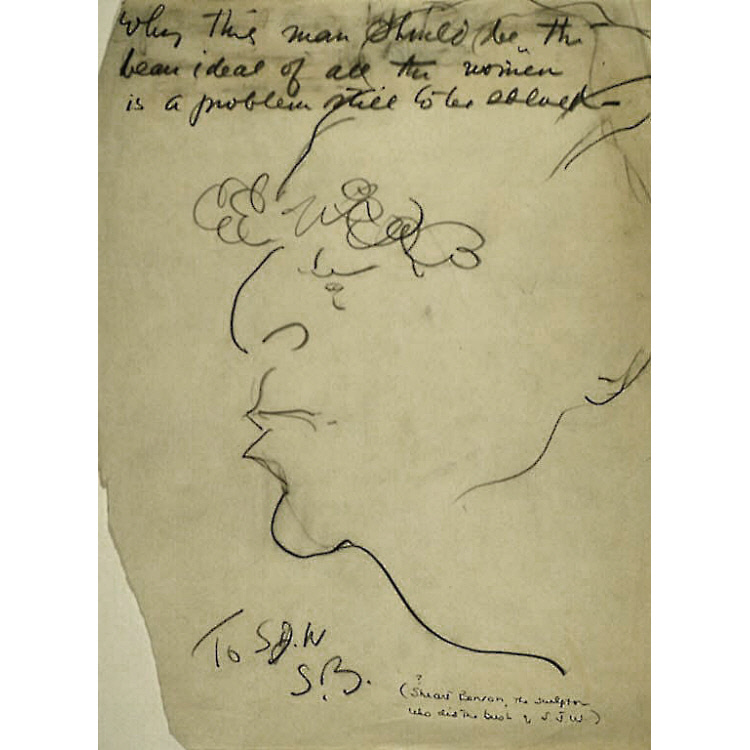 Why this man should be the
beau ideal of all the women
is a problem still to be solved —
To S.J.W
S.B.
?
(Stuart Benson, the sculptor
who did the bust of S.J.W.)